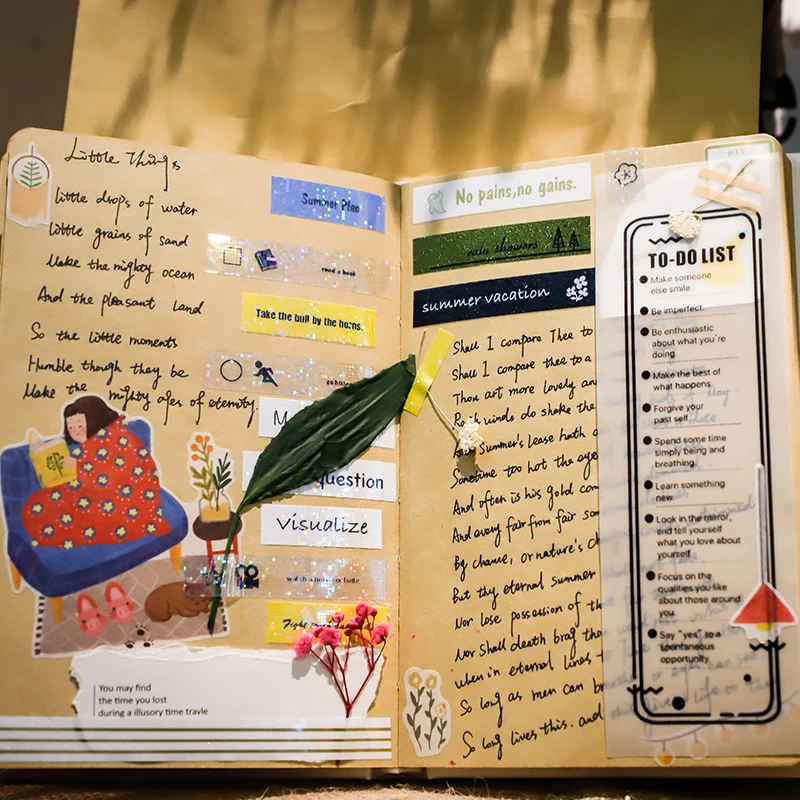 Little Things
little drops of water
little grains of sand
Make the mighty ocean
And the pleasant land
So the little moments
Humble though they be
Make the mighty ages of eternity.
Summer Plan
read a book
Take the bull by the horns.
question
Visualize
You may find
the time you lost
during a illusory time travle
No pains,no gains.
rain showers
summer vacation
Shall I compare Thee to
Shall I compare thee to a
Thou art more lovely an
Rough winds do shake the
Summer's lease hath a
Sometime too hot the eye
And often is his gold com
And every fair from fair som
By chance, or nature's ch
But thy eternal summer
Nor lose possession of th
Nor shall death brag tho
when in eternal lines t
So long as men can b
So long lives this. and
DAY
TO-DO LIST
Make someone
else smile.
Be imperfect.
Be enthusiastic
about what you're
doing.
Make the best of
what happens.
Forgive your
past self.
Spend some time
simply being and
breathing.
Learn something
new.
Look in the mirror,
and tell yourself
what you love about
yourself.
Focus on the
qualities you like
about those around
you.
Say "yes" to a
spontaneous
opportunity